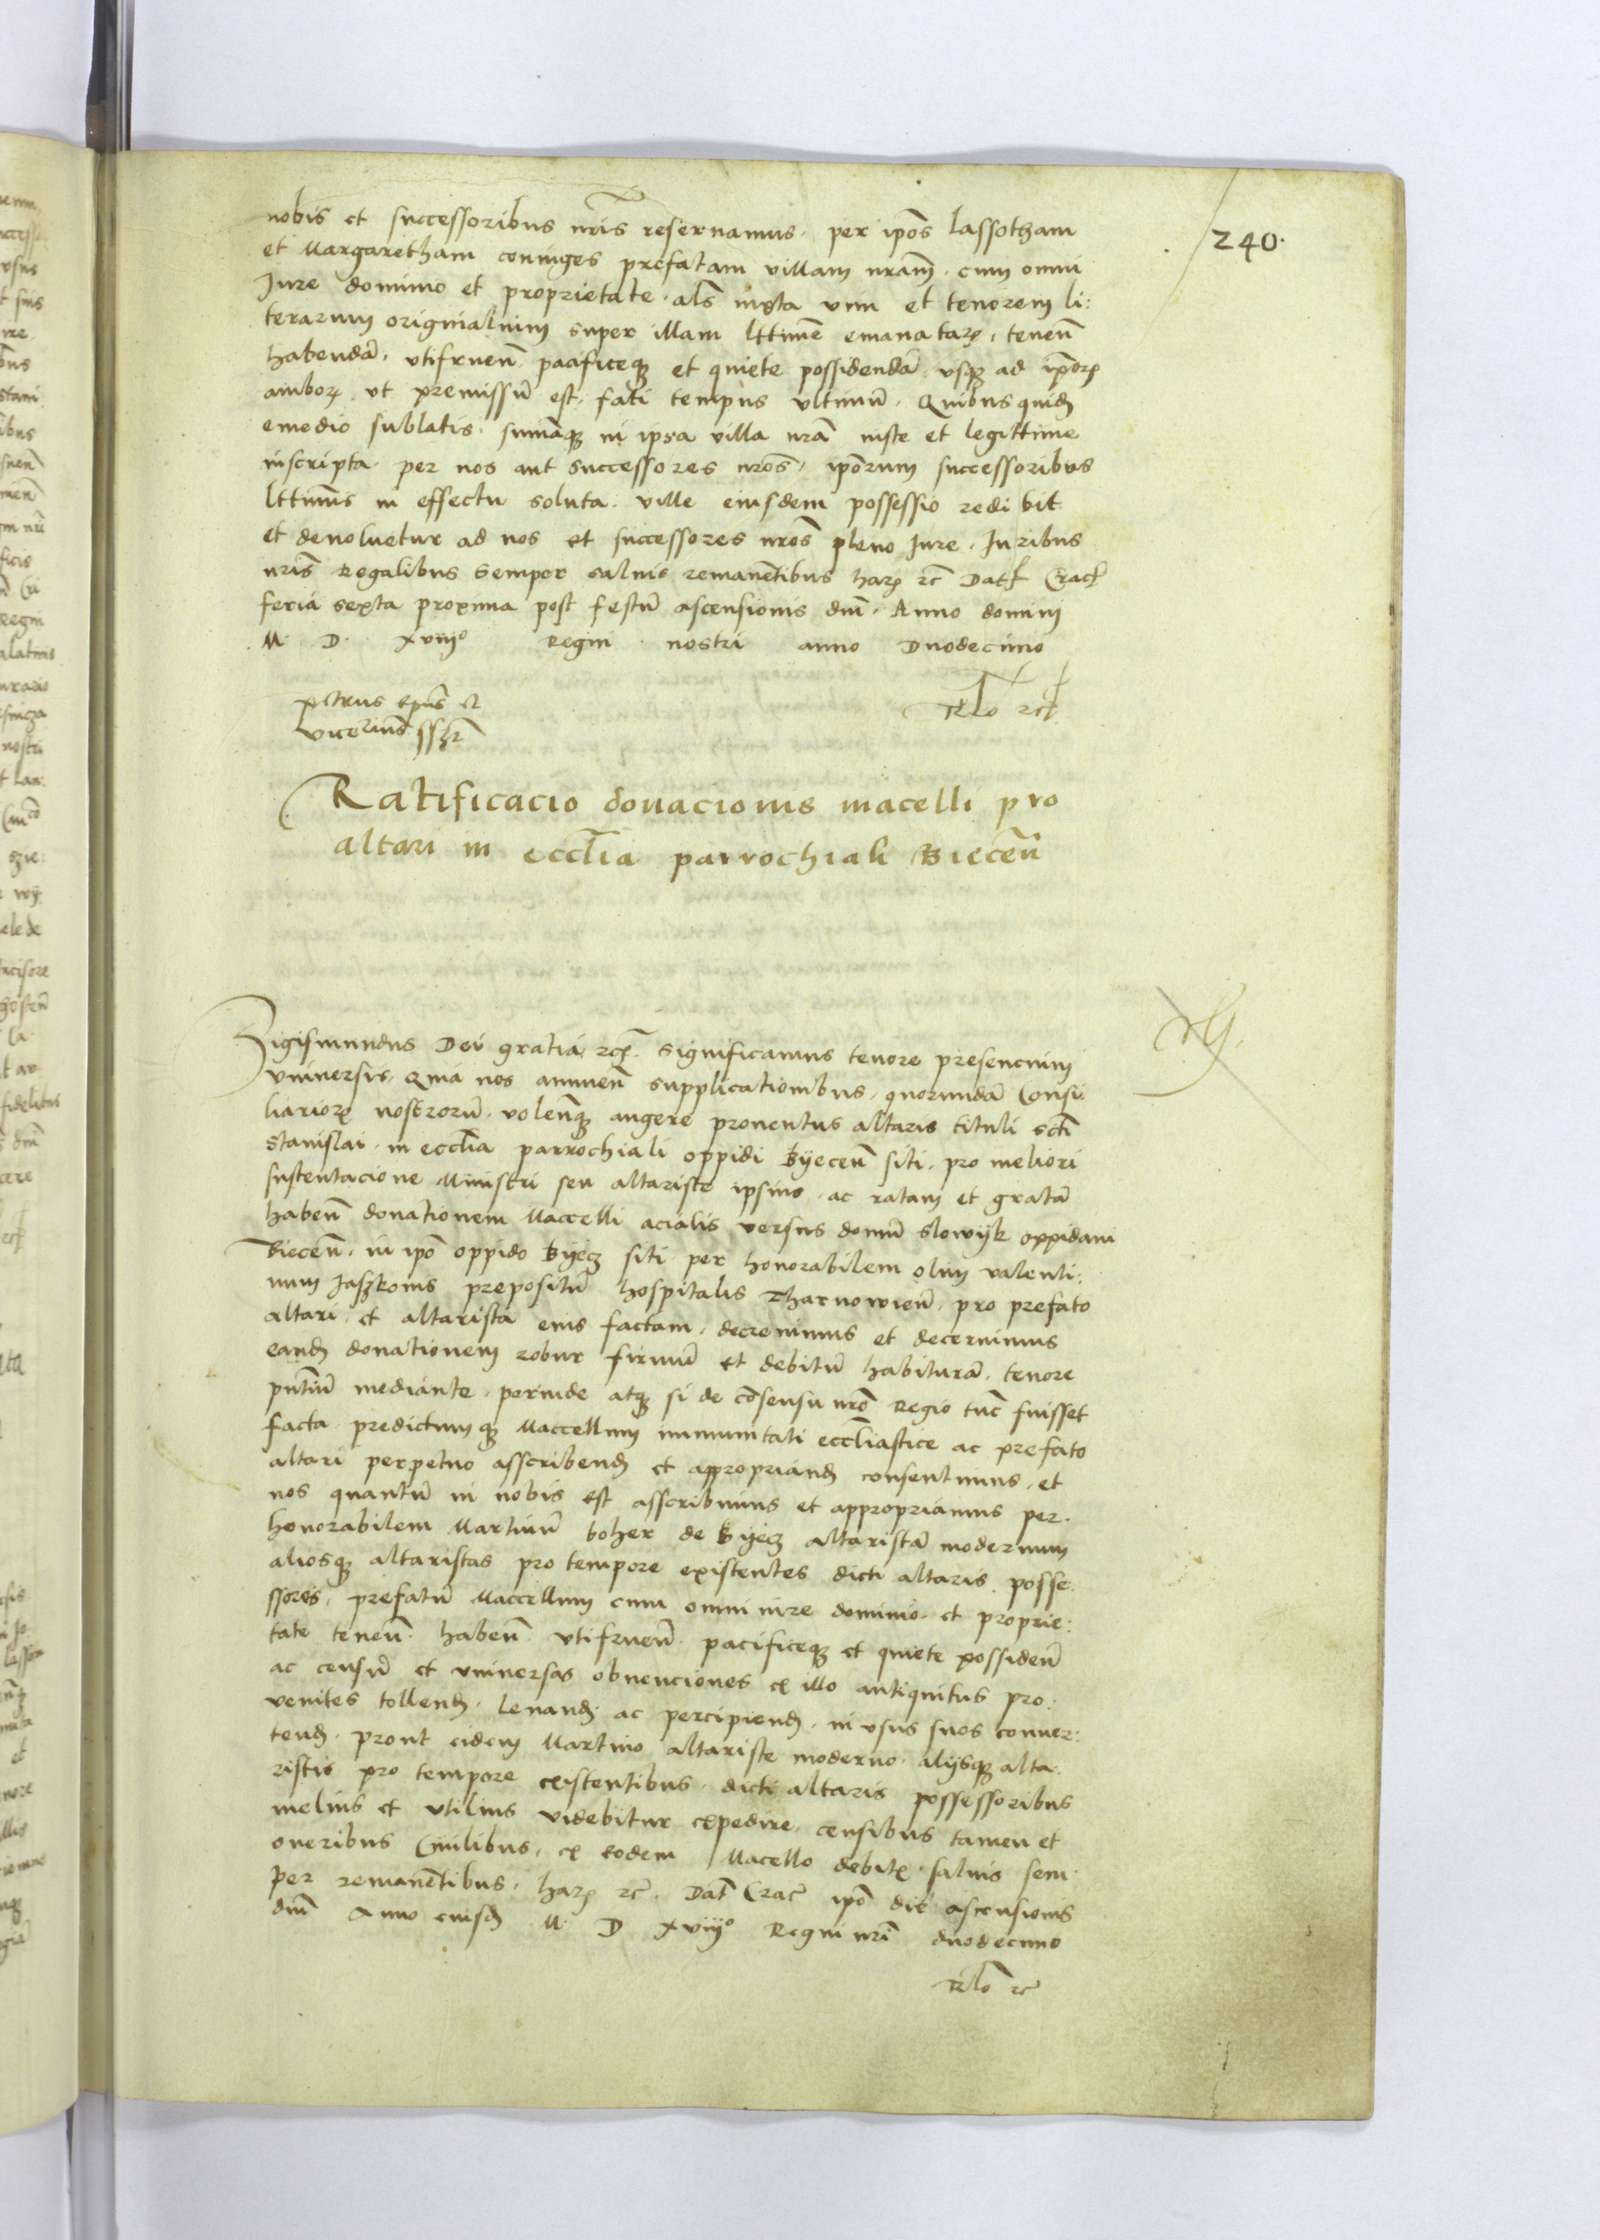 240.
nobis et successoribus nr̃is reseruamus. per ip̃os Lassotham
et Margaretham coniuges prefatam villam nr̃am. cum omni
Jure dominio et proprietate. al̃s iuxta vim et tenorem li:
terarum originalium super illam l̃ttime emanatarꝫ, tenen̄
habendā, vtifruen̄ pacificeqꝫ et quiete possidendā. vsqꝫ ad ip̃orꝫ
amborꝫ vt premissū est, fati tempus vltimū. Quibus quidꝫ
emedio sublatis. summaqꝫ in ipsa villa nr̃a iuste et legittime
inscripta. per nos aut successores nr̃os, ip̃orum successoribus
l̃ttimis in effectu soluta. ville eiusdem possessio redibit
et deuoluetur ad nos et successores nr̃os pleno Jure. Juribus
nr̃is Regalibus semper saluis remanẽtibus harꝫ rc̃ Datt̃ Crac̃
feria sexta proxima post festū ascensionis dn̄i. Anno domini
M. D. xviijº Regni nostri anno Duodecimo
Petrus ep̃us et
vicecan̄s sszt
Rl̃o rc̃
Ratificacio donacionis macelli pro
altari in eccl̃ia parrochiali Biecen̄
Sigismundus Dei gratia rc̃. Significamus tenore presencium
vniuersis. Quia nos annuen̄ supplicationibus, quorundā Consi
liariorꝫ nostrorū. volen̄qꝫ augere prouentus altaris tituli sc̃ti
Stanislai. in eccl̃ia parrochiali oppidi Byecen̄ siti, pro meliori
sustentacione Ministri seu altariste ipsius. ac ratam et gratā
haben̄ donationem Maccelli acialis versus domū Slowyk oppidani
Biecen̄. in ip̃o oppido Byecz siti. per honorabilem olim Valenti:
num Jaszkonis prepositū hospitalis Tharnowien̄. pro prefato
altari. et altarista eius factam. decreuimus et decernimus
eandꝫ donationem robur firmū et debitū habiturā. tenore
pn̄tiū mediante. perinde atqꝫ si de cōsensu nr̃o Regio tūc fuisset
facta. predictumqꝫ Maccellum immunitati eccl̃iastice ac prefato
altari perpetuo asscribendꝫ et appropriandꝫ consentimus. et
nos quantū in nobis est asscribimus et appropriamus per.
honorabilem Martinū boher de Byecz altaristā modernum
aliosqꝫ altaristas pro tempore existentes dicti altaris. posse
ssores, prefatū Maccellum cum omni iure dominio. et proprie:
tate tenen̄. haben̄ vtifruen̄. pacificeqꝫ et quiete possiden̄
ac censū et vniuersas obuenciones ex illo antiquitus pro:
venites tollendꝫ. Leuandꝫ. ac percipiendꝫ. in vsus suos conuer:
tendꝫ. prout eidem Martino altariste moderno. alijsqꝫ alta.
ristis pro tempore existentibus. dicti altaris possessoribus
melius et vtilius videbitur expedire. censibus tamen et
oneribus Ciuilibus. ex eodem Macello debitꝫ. saluis sem
per remanētibus. harꝫ rc̃. Dat̃ Crac̃ ip̃o die ascensionis
dn̄i Anno eiusdꝫ M. D xviijº Regni nr̃i duodecimo
Rl̃o rc̃